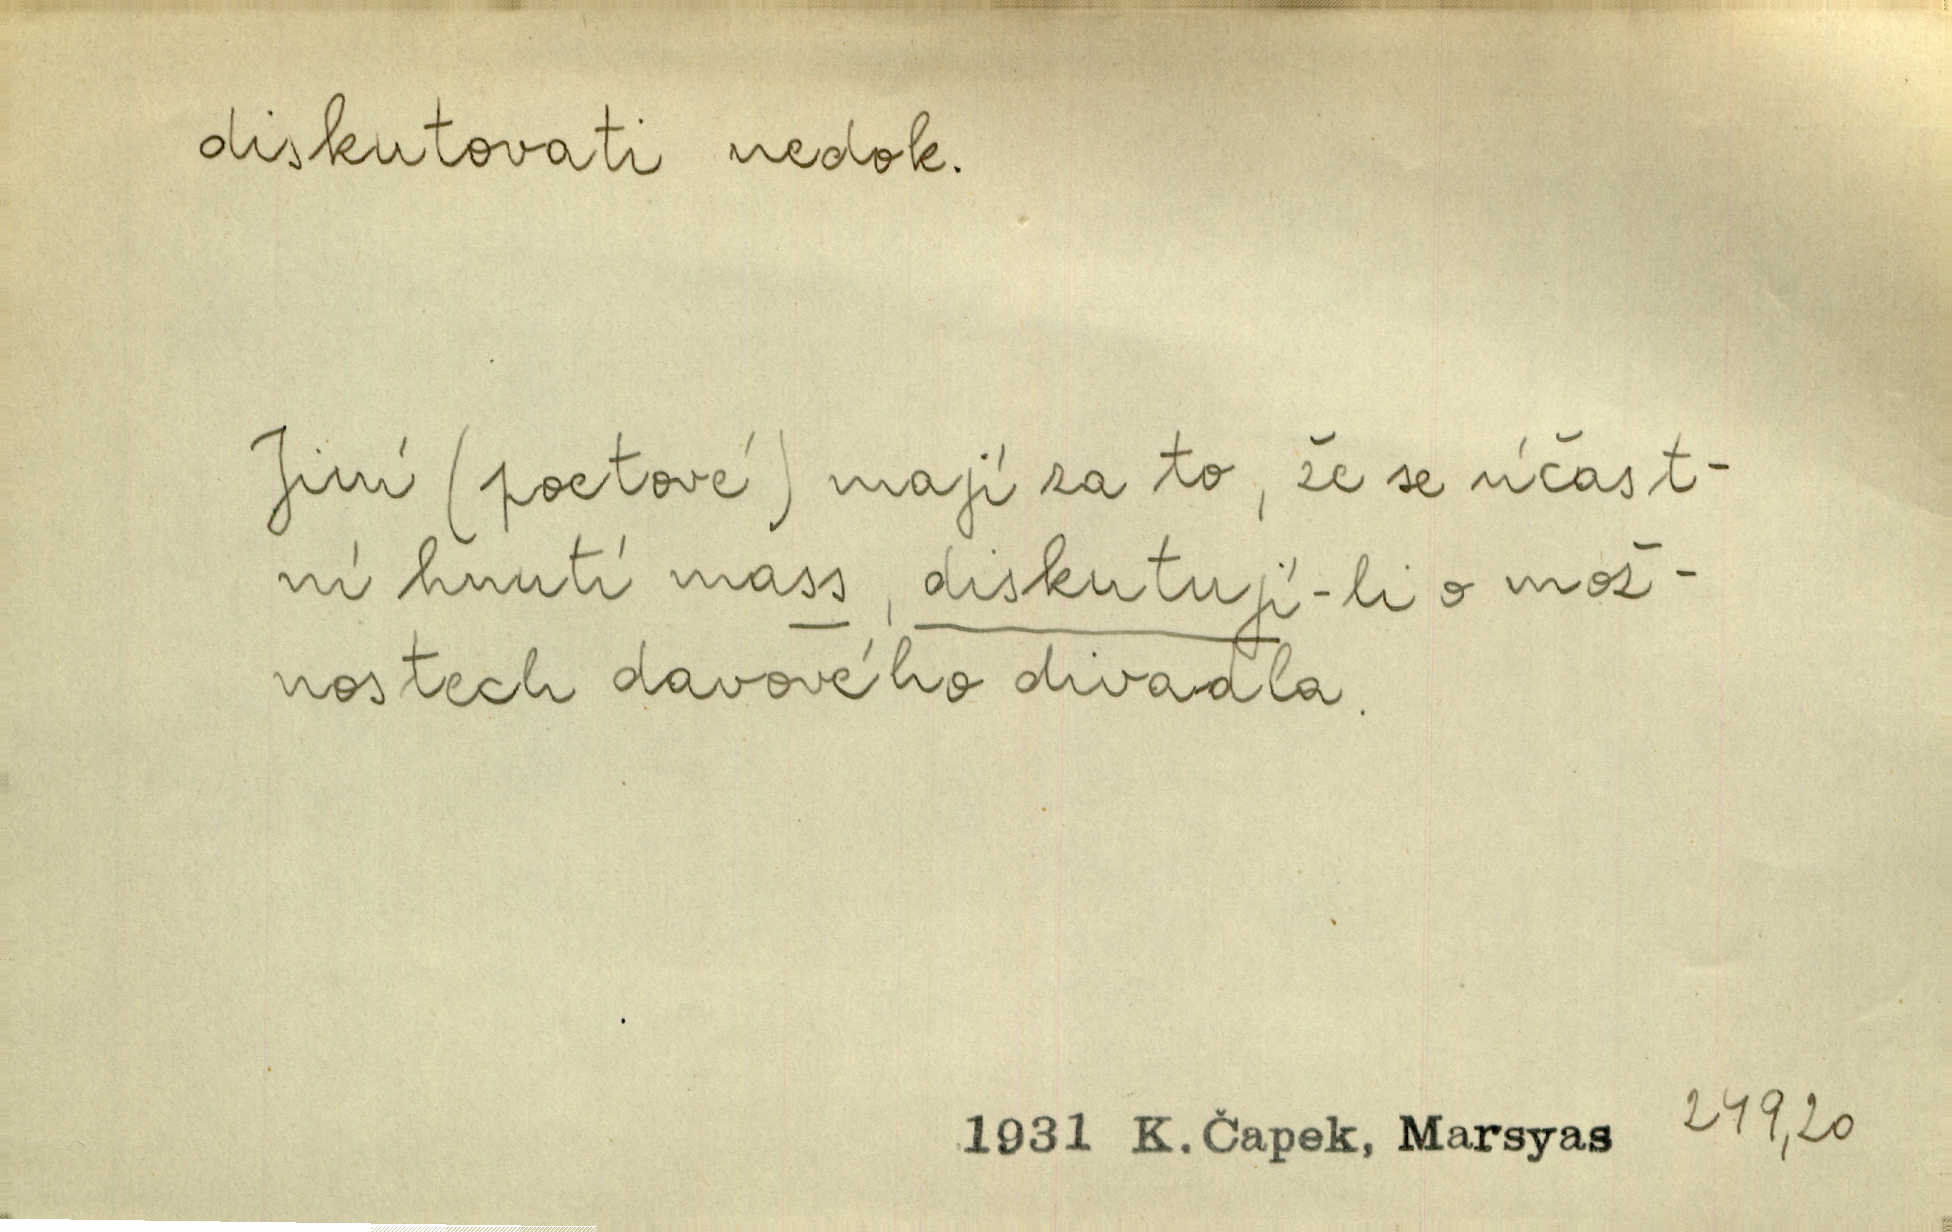 diskutovati nedok.
Jiní (poetové) mají za to, že se účast-
ní hnutí mass, diskutují-li o mož-
nostech davového divadla.
1931 K. Čapek, Marsyas 249,20